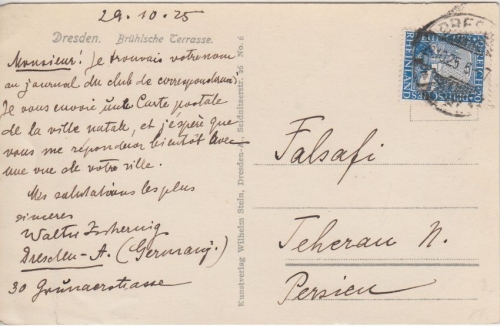 29.10.25
Dresden. Brühlsche Terrasse.
Monsieur! Je trouvais votre nom
au journal du club de correspondance
Je vous envoie une Carte postale
de la ville natale, et j'espère que
vous me répondrez bientôt avec
une vue de votre ville.
Mes salutations les plus
sincères
Walter Zschernig
Dresden-A. (Germany.)
30 Grunaerstrasse
Kunstverlag Wilhelm Stein, Dresden-A., Seidnitzerstr. 16 No. 6
DRES
RHEINLAND
Falsafi
Teheran N.
Persien